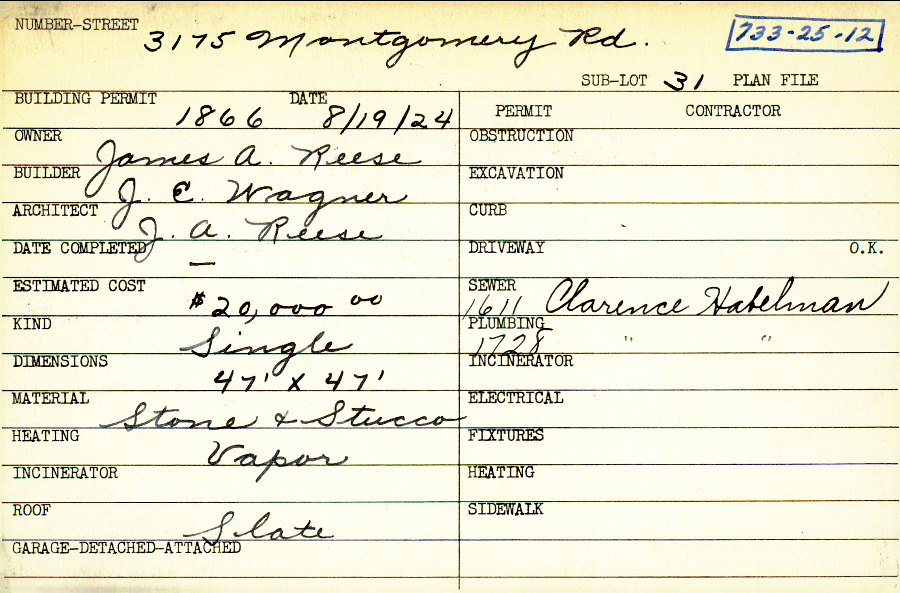 NUMBER-STREET 3175 Montgomery Rd. 733-25-12
SUB-LOT 31 PLAN FILE
BUILDING PERMIT 1866 DATE 8/19/24
PERMIT CONTRACTOR
OWNER James A. Reese
OBSTRUCTION
BUILDER J. E. Wagner
EXCAVATION
ARCHITECT J. A. Reese
CURB
DATE COMPLETED —
DRIVEWAY O.K.
ESTIMATED COST $20,000 00
SEWER 1611 Clarence Habelman
KIND Single
PLUMBING 1728 " "
DIMENSIONS 47' X 47'
INCINERATOR
MATERIAL Stone & Stucco
ELECTRICAL
HEATING Vapor
FIXTURES
INCINERATOR
HEATING
ROOF Slate
SIDEWALK
GARAGE-DETACHED-ATTACHED